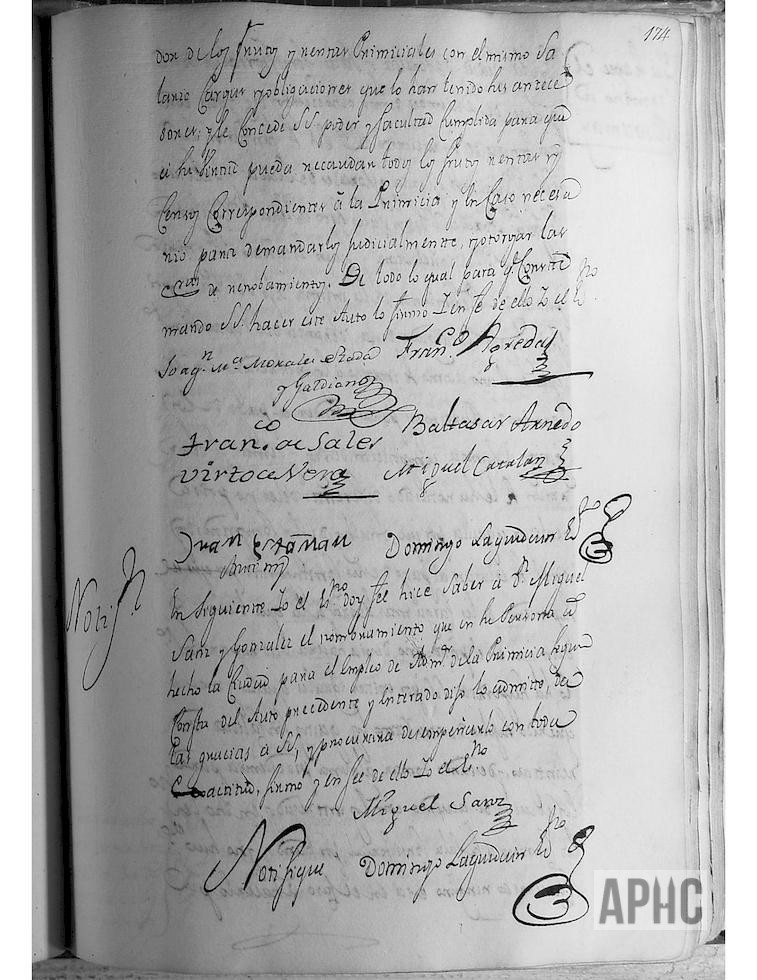 174
dor de los frutos y rentas Primiciales con el mismo Sa
lario Cargas y obligaciones que lo han tenido sus antece
sores, y le Concede SS. poder y facultad Cumplida para que
pueda reccaudar todos los frutos rentas y
Censos Correspondientes à la Primicia y en Caso necesa
rio para demandarlos Judicialmente, y otorgar las
de De todo lo qual para qe. Conste
mando SS. hacer este Auto lo firmo I en fe de ello Yo el Esno.
Joaqn. Ma. Morales Rada Franco. Agreda
y Gardiano
Baltasar Arnedo
Franco. de Sales
Virto de Vera Miguel Catalan
Juan
Domingo Laguardia Esno
Notifn.
En Siguiente Yo el Esno doy fee hice Saber à Dn. Miguel
Sanz y Gonzalez el nombramiento que en su Persona à
hecho la Ciudad para el Empleo de Admr. de la Primicia segun
Consta del Auto precedente y Enterado dijo lo admitte, da
las gracias à SS, y procurara desempeñarlo con toda
Exactitud, firmò y en fee de ello Yo el Esno
Miguel Sanz
Notifique Domingo Laguardia Esno
APHC